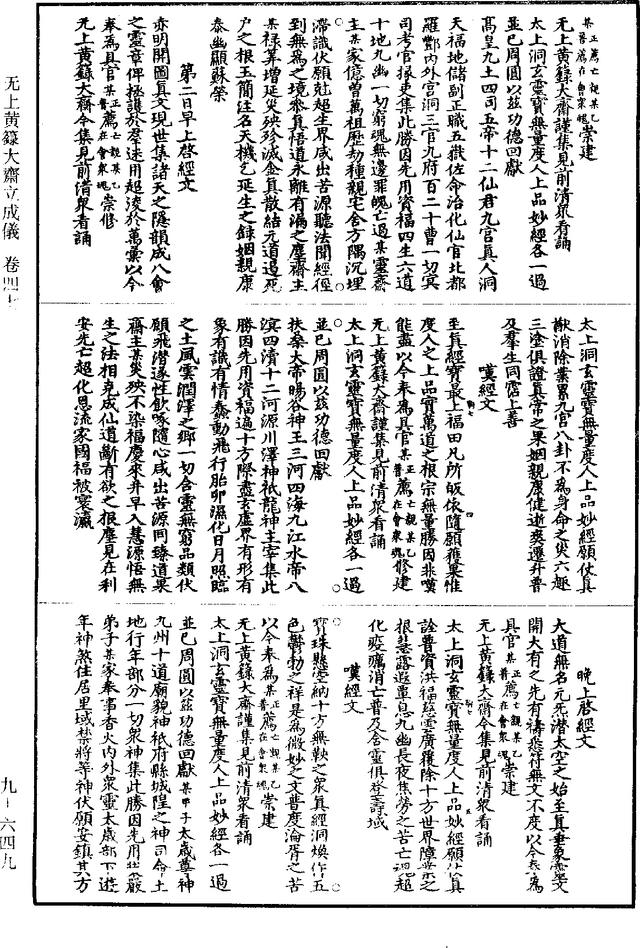 某正薦亡親某乙普薦在會衆魂崇建
无上黃籙大齋謹集見前清衆看誦
太上洞玄靈寶無量度人上品妙經各一過
並已周圓以兹功德回獻
高皇九土四司五帝十二仙君九宮真人洞
天福地儲副正職五嶽佐命治化仙官北都
羅酆內外宮洞三官九府百二十曹一切冥
司考官掾吏集此勝因先用資福四生六道
十地九幽一切窮魂無邊罪魄亡過某靈齋
主某家億曾萬祖歷劫種親宅舍方隅沉埋
滯識伏願尅超生界咸出苦源聽法聞經徑
到無為之境參真悟道永離有漏之塵齋主
某祿筭增延災殃殄滅金真散結元道遏死
戶之根玉簡注名天機乞延生之錄姻親康
泰幽顯蘇榮
第二日早上啓經文
赤明開圖真文現世集諸天之隱韻成八會
之靈章俾拯護於羣迷用超淩於萬彙以今
奉為具官某正薦亡親某乙普薦在會衆魂崇修
无上黃籙大齋今集見前清衆看誦
太上洞玄靈寶無量度人上品妙經願仗真
猷消除業累九宮八卦不為身命之災六趣
三塗俱證真常之果姻親康健逝爽遷昇普
及羣生同霑上善
嘆經文
至真經寶最上福田凡所皈依隨願獲果惟
度人之上品實萬道之根宗無量勝因非嘆
能盡以今奉為具官某正薦亡親某乙普薦在會衆魂修建
无上黃籙大齋謹集見前清衆看誦
太上洞玄靈寶無量度人上品妙經各一過
並已周圓以兹功德回獻
扶桑大帝暘谷神王三河四海九江水帝八
溟四瀆十二河源川澤神祇龍神主宰集此
勝因先用資福遍十方際盡玄虛界有形有
象有識有情蠢動飛行胎卵濕化日月照臨
之土風雲潤澤之鄉一切含靈無窮品類伏
願飛潛遂性飲啄隨心咸出苦源同臻道果
齋主某災殃不染福慶來并早入慧源悟無
生之法相克成仙道斷有欲之根塵見在利
安先亡超化恩流家國福被寰瀛
晚上啓經文
大道無名元炁潛太空之始至真垂象靈文
開大有之先有禱悉符無文不度以今奉為
具官某正薦亡親某乙普薦在會衆魂崇建
无上黃籙大齋今集見前清衆看誦
太上洞玄靈寶無量度人上品妙經願仗真
詮普資洪福慈雲廣覆除十方世界障業之
根慧露遐覃息九幽長夜焦勞之苦亡魂超
化疫癘消亡普及含靈俱登壽域
嘆經文
寶珠懸空納十方無鞅之衆真經洞煥作五
色鬱勃之祥是為微妙之文普度淪胥之苦
以今奉為某正薦亡親某乙普薦在會衆魂崇建
无上黃籙大齋謹集見前清衆看誦
太上洞玄靈寶無量度人上品妙經各一過
並已周圓以兹功德回獻某甲子太歲尊神
九州十道廟貌神祇府縣城隍之神司命土
地行年部分一切衆神集此勝因先用莊嚴
弟子某家奉事香火內外衆靈太歲部下遊
年神煞住居里域禁將等神伏願安鎮其方
无上黃籙大齋立成儀 卷四十
九-六四九